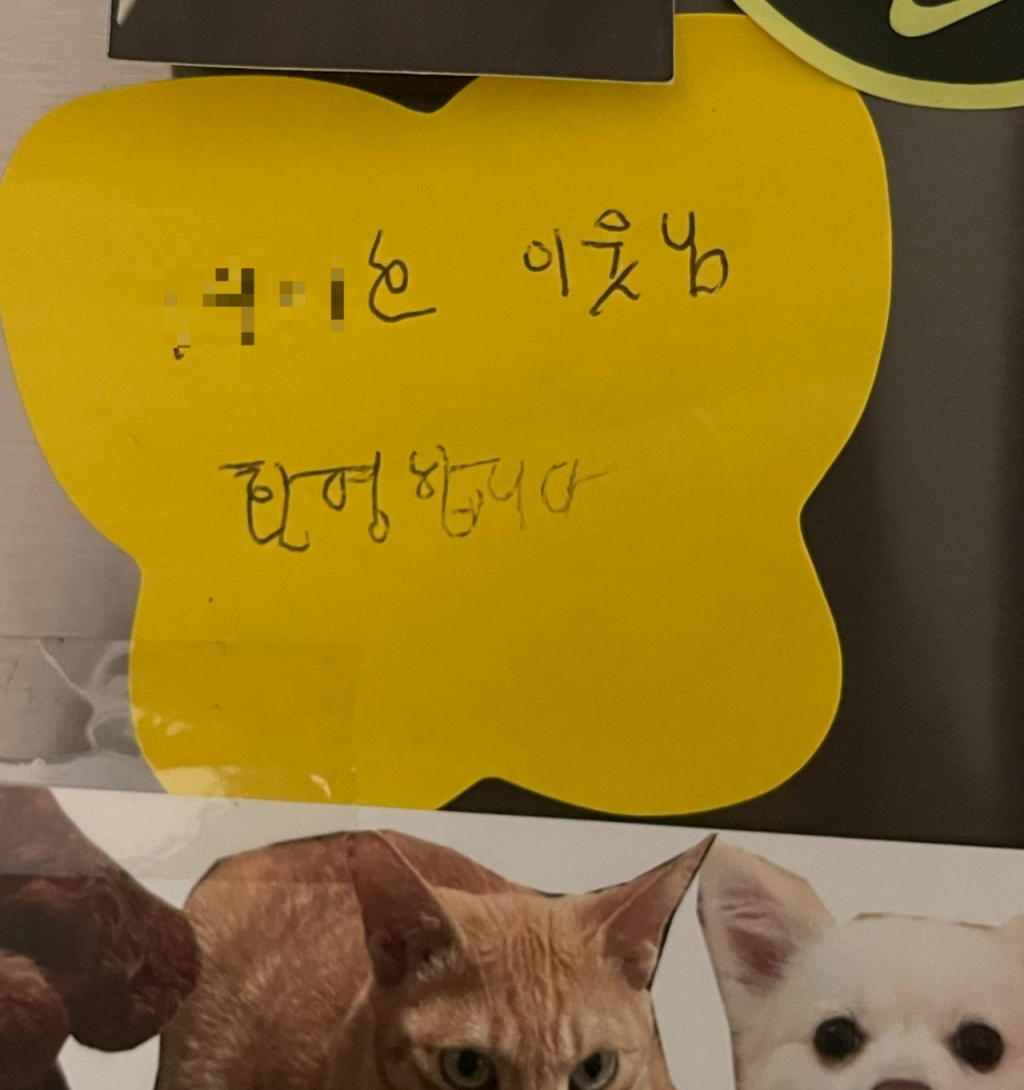 이웃님
환영합니다